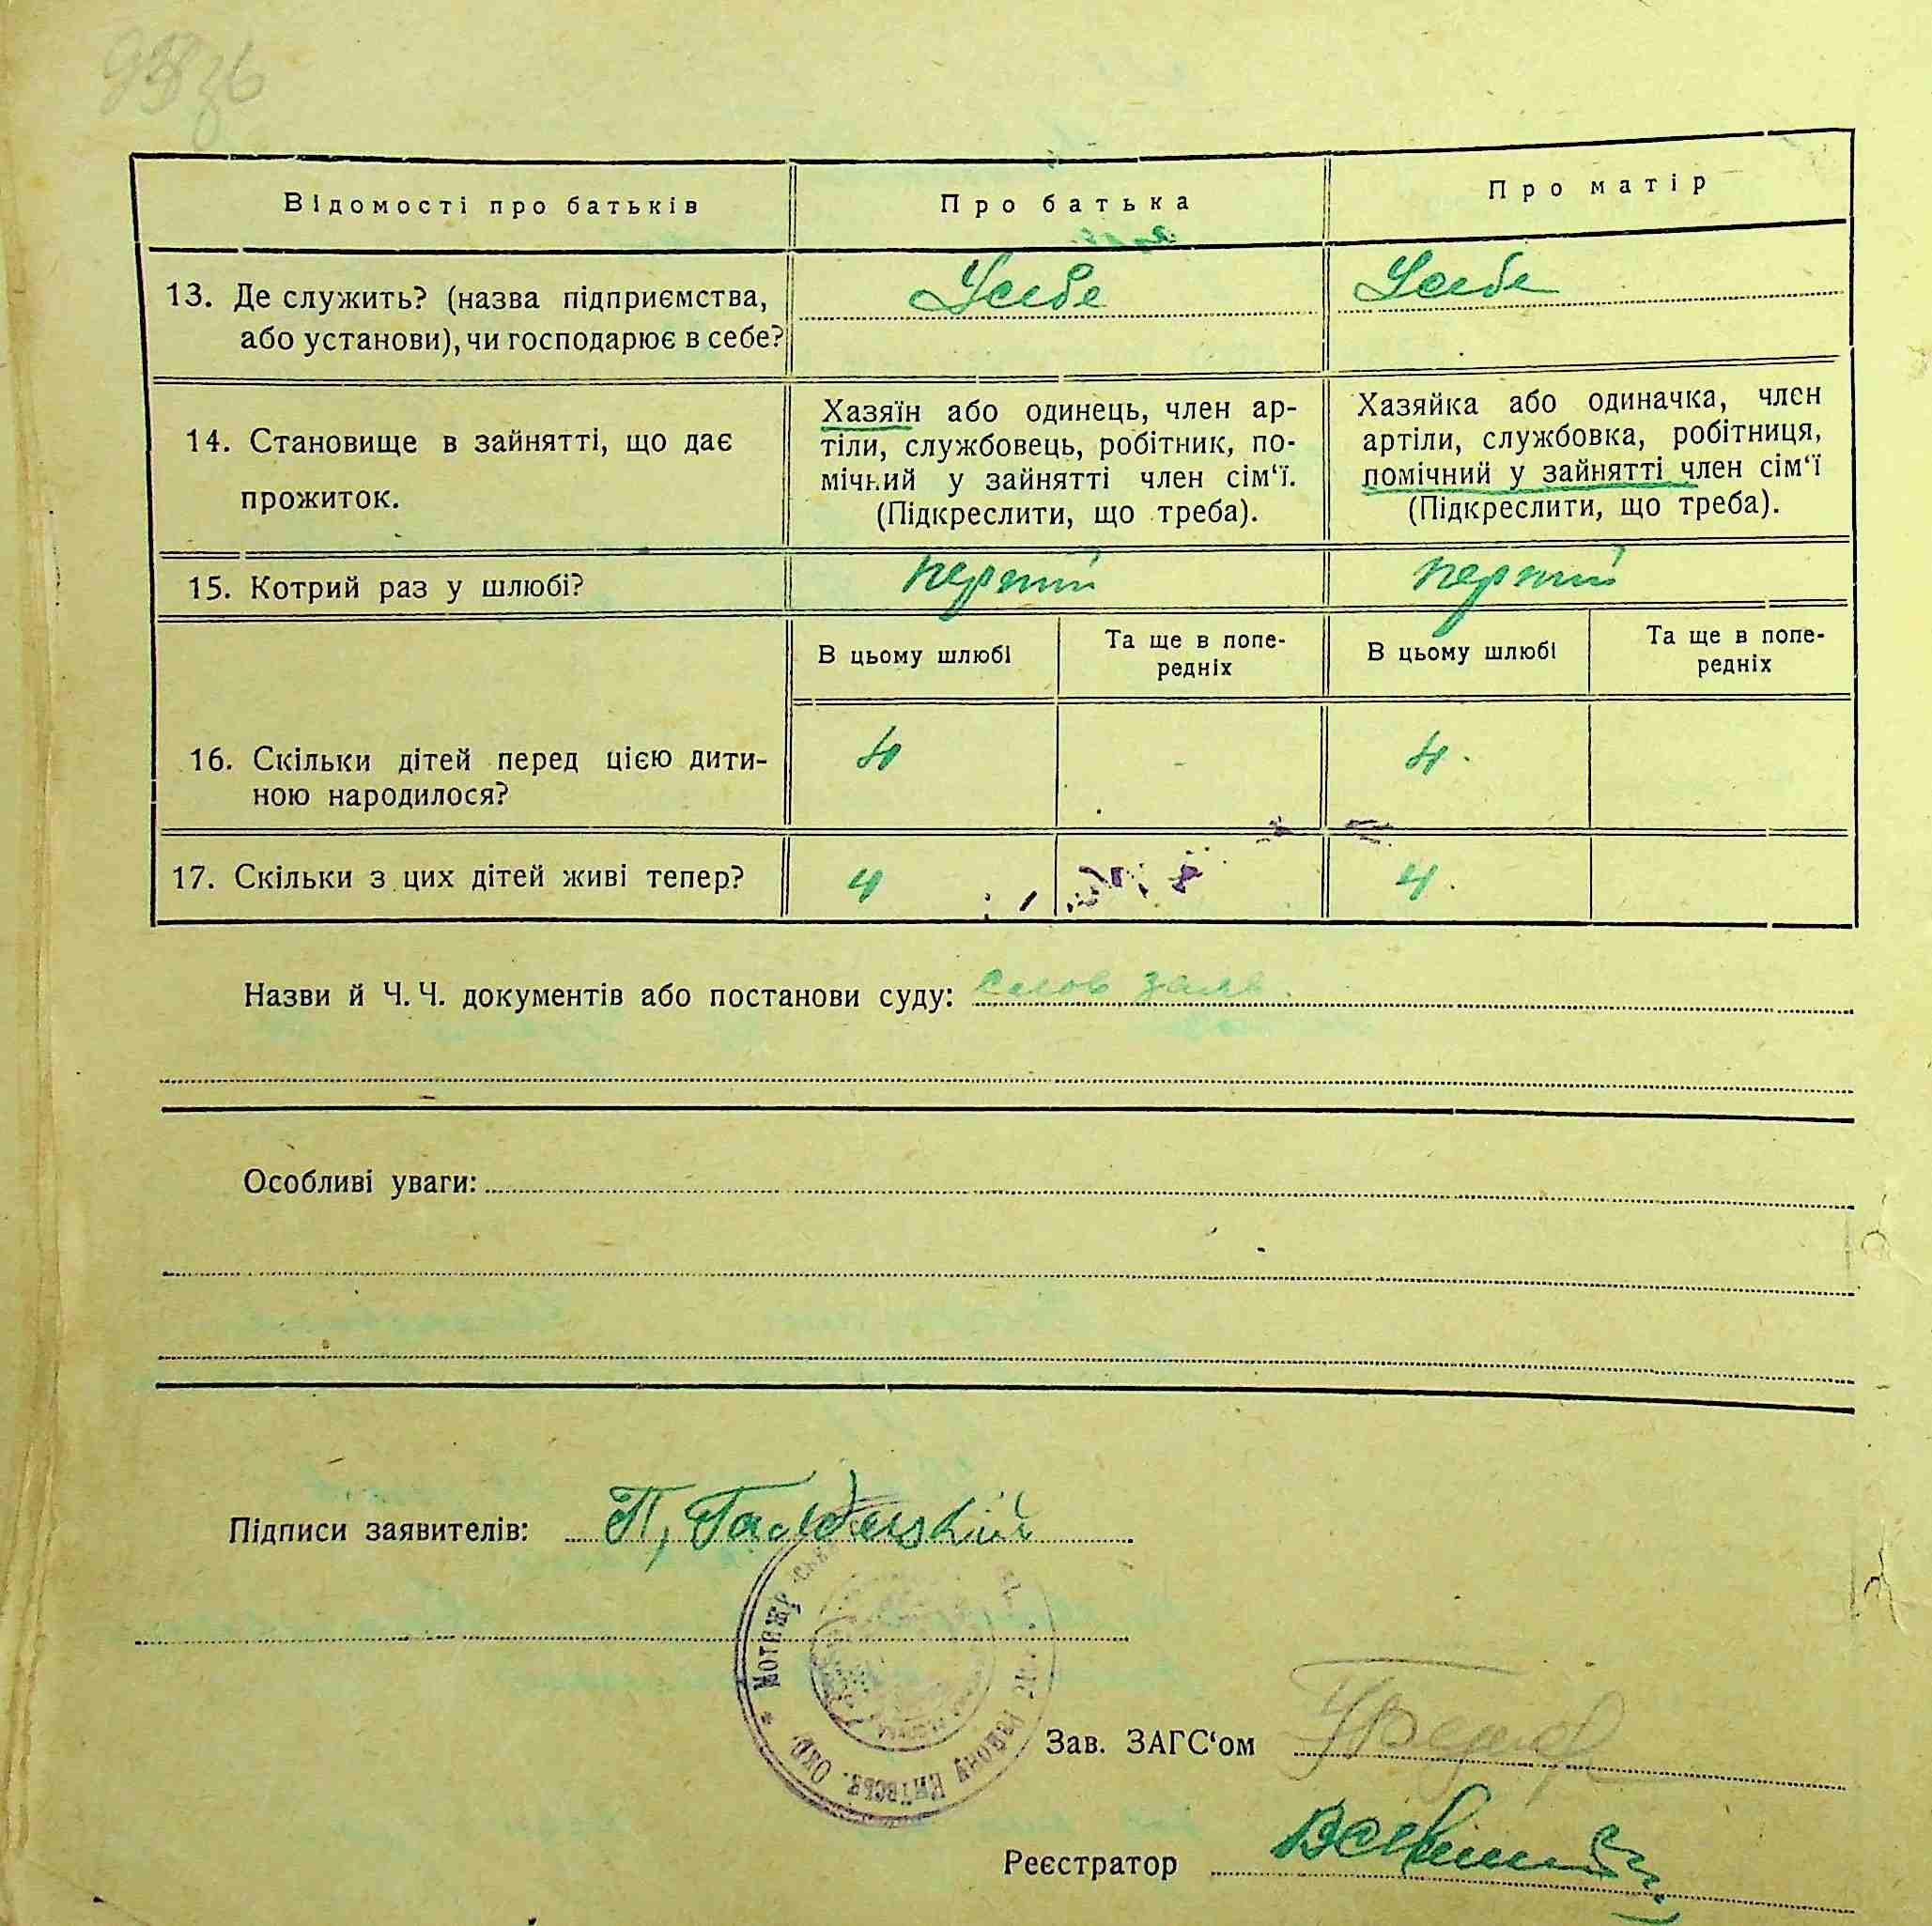 Відомості про батьків
Про батька
Про матір
13. Де служить? (назва підприємства,
або установи), чи господарює в себе?
Усебе
Усебе
14. Становище в зайнятті, що дає
прожиток.
Хазяїн або одинець, член ар-
тіли, службовець, робітник, по-
мічний у зайнятті член сім‘ї.
(Підкреслити, що треба).
Хазяйка або одиначка, член
артіли, службовка, робітниця,
помічний у зайнятті член сім‘ї
(Підкреслити, що треба).
15. Котрий раз у шлюбі?
перший
перший
В цьому шлюбі
Та ще в попе-
редніх
В цьому шлюбі
Та ще в попе-
редніх
16. Скільки дітей перед цією дити-
ною народилося?
4
-
4.
17. Скільки з цих дітей живі тепер?
4
4.
Назви й Ч. Ч. документів або постанови суду: слов заяв.
Особливі уваги:
Підписи заявителів:
П,
Київськ. Окр.
Зав. ЗАГС‘ом
Реєстратор